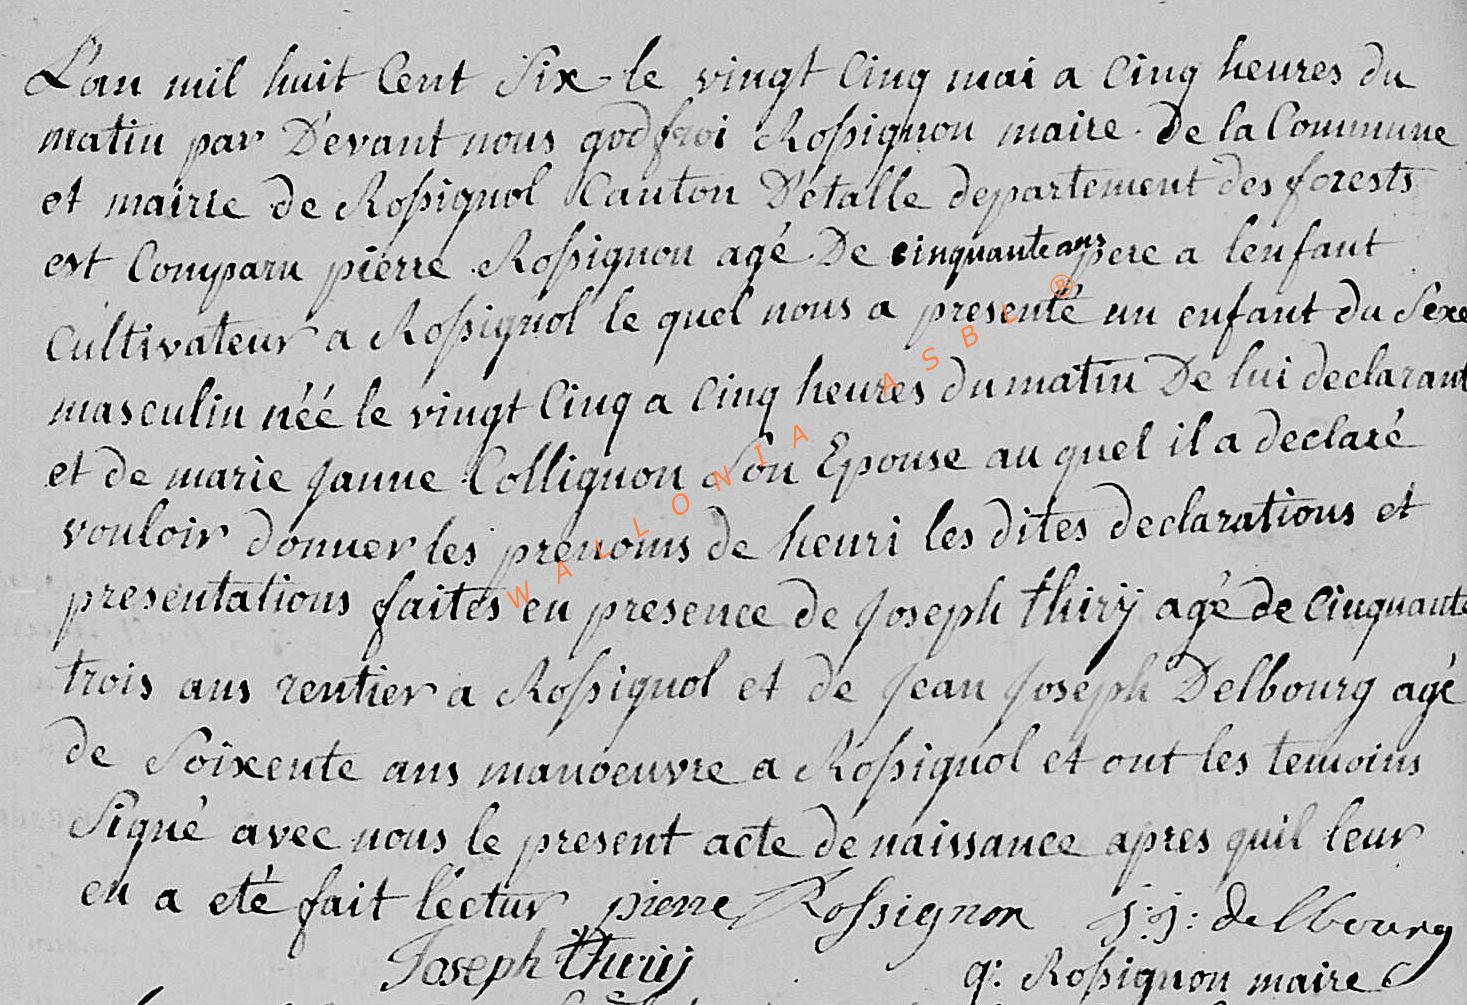 L'an mil huit Cent Six - le vingt Cinq mai a Cinq heures du
matin par D'evant nous godfroi Rossignon maire. De la Commune
et mairie de Rossignol Canton D'etalle departement des forests
est Comparu pierre Rossignon agé De cinquante ans pere a lenfant
Cultivateur a Rossignol le quel nous a presenté un enfant du Sexe
masculin néé le vingt Cinq a Cinq heures du matin De lui declarant
et de marie Janne Collignon Son Epouse au quel il a declaré
vouloir donner les prenoms de henri les dites declarations et
presentations faites en presence de Joseph thirÿ agé de Cinquante
trois ans rentier a Rossignol et de Jean Joseph Delbourg agé
de Soixente ans manoeuvre a Rossignol et ont les temoins
Signé avec nous le present acte de naissance apres quil leur
en a eté fait léctur pierre Rossignon j:j: delbourg
Joseph thirÿ g: Rossignon maire
WALLONIA ASBL ®